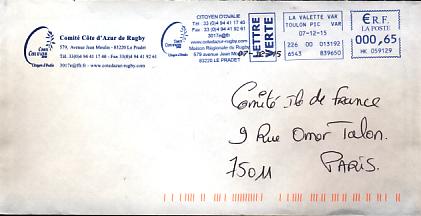 Comité Côte d'Azur de Rugby
579, Avenue Jean Moulin - 83220 Le Pradet
Tél. 33(0)4 94 41 17 40 - Fax 33(0)4 94 41 92 61
3017e@ffr.fr - www.cotedazur-rugby.com
Citoyen d'Ovalie
CITOYEN D'OVALIE
Tél 33 (0)4 94 41 17 40
Fax 33 (0)4 94 41 92 61
3017e@ffr
www.cotedazur-rugby.com
Maison Régionale du Rugby
579 avenue Jean Moulin
83220 LE PRADET
LETTRE
VERTE
07-12-15
LA VALETTE VAR
TOULON PIC VAR
07-12-15
226 00 013192
6543 839650
€R.F.
LA POSTE
000,65
HK 059129
Comité Ile de France
9 Rue Omer Talon.
75011 PARIS.